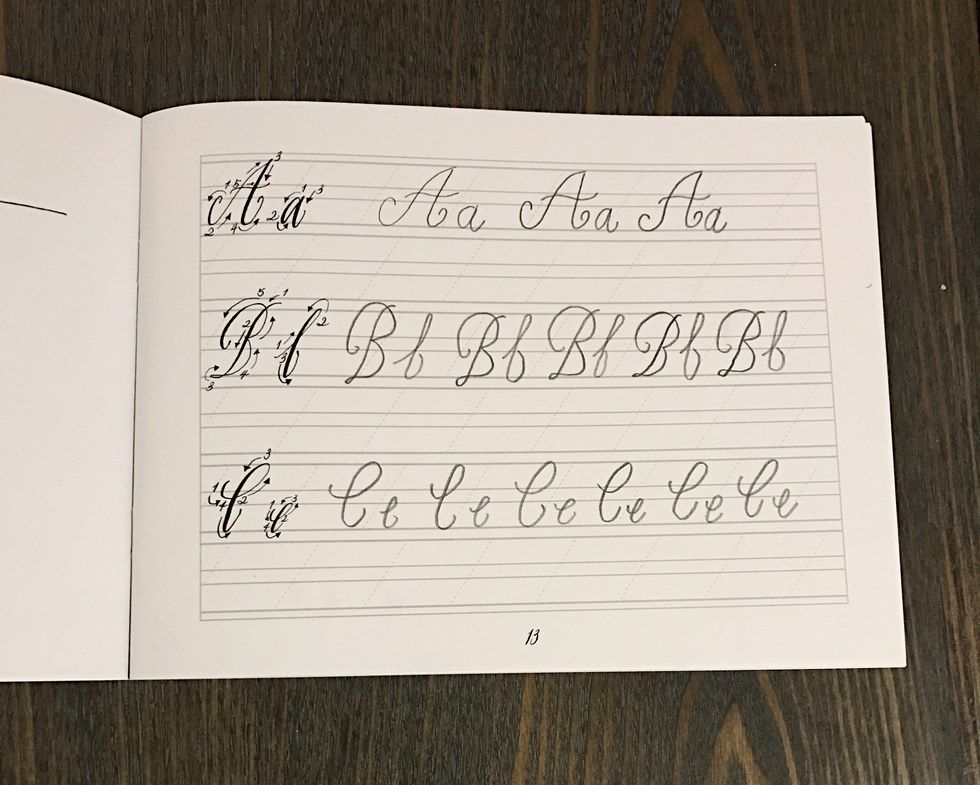 A a Aa Aa Aa
B b Bb Bb Bb Bb Bb
C c Cc Cc Cc Cc Cc Cc
13